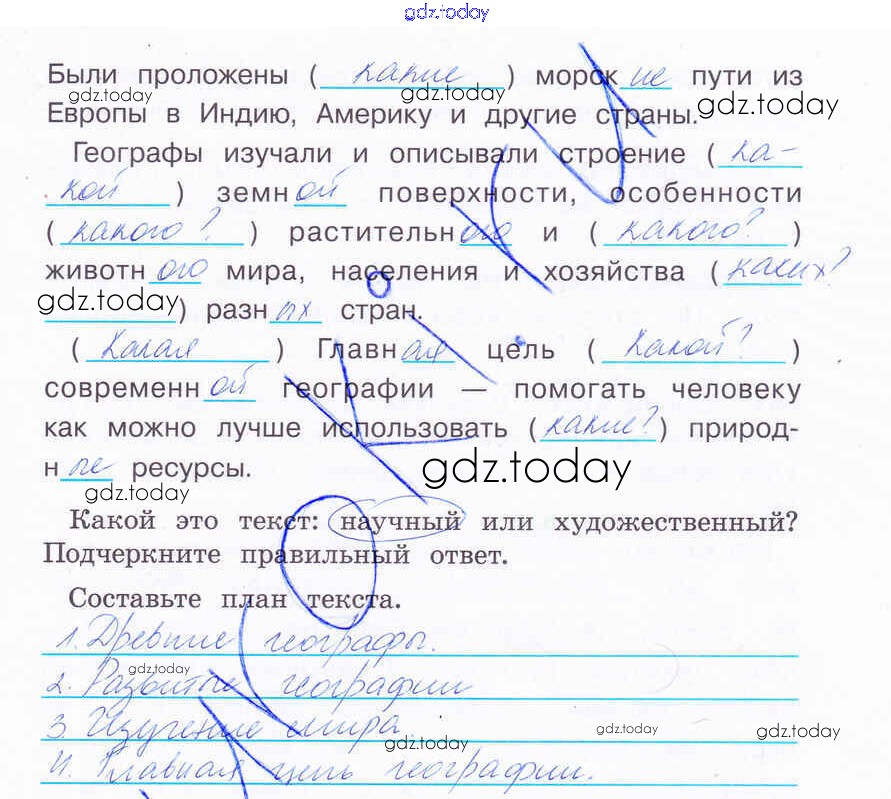 gdz.today
Были проложены ( какие ) морские пути из
gdz.today gdz.today gdz.today
Европы в Индию, Америку и другие страны.
Географы изучали и описывали строение ( ка-
кой ) земной поверхности, особенности
( какого? ) растительного и ( какого? )
животного мира, населения и хозяйства ( каких?
gdz.today gdz.today
) разных стран.
( Какая ) Главная цель ( какой? )
современной географии — помогать человеку
как можно лучше использовать ( какие? ) природ-
ные ресурсы.
gdz.today
gdz.today
Какой это текст: научный или художественный?
Подчеркните правильный ответ.
Составьте план текста.
1. Древние географы.
gdz.today
2. Развитие географии
3. Изучение мира.
gdz.today gdz.today gdz.today
4. Главная цель географии.